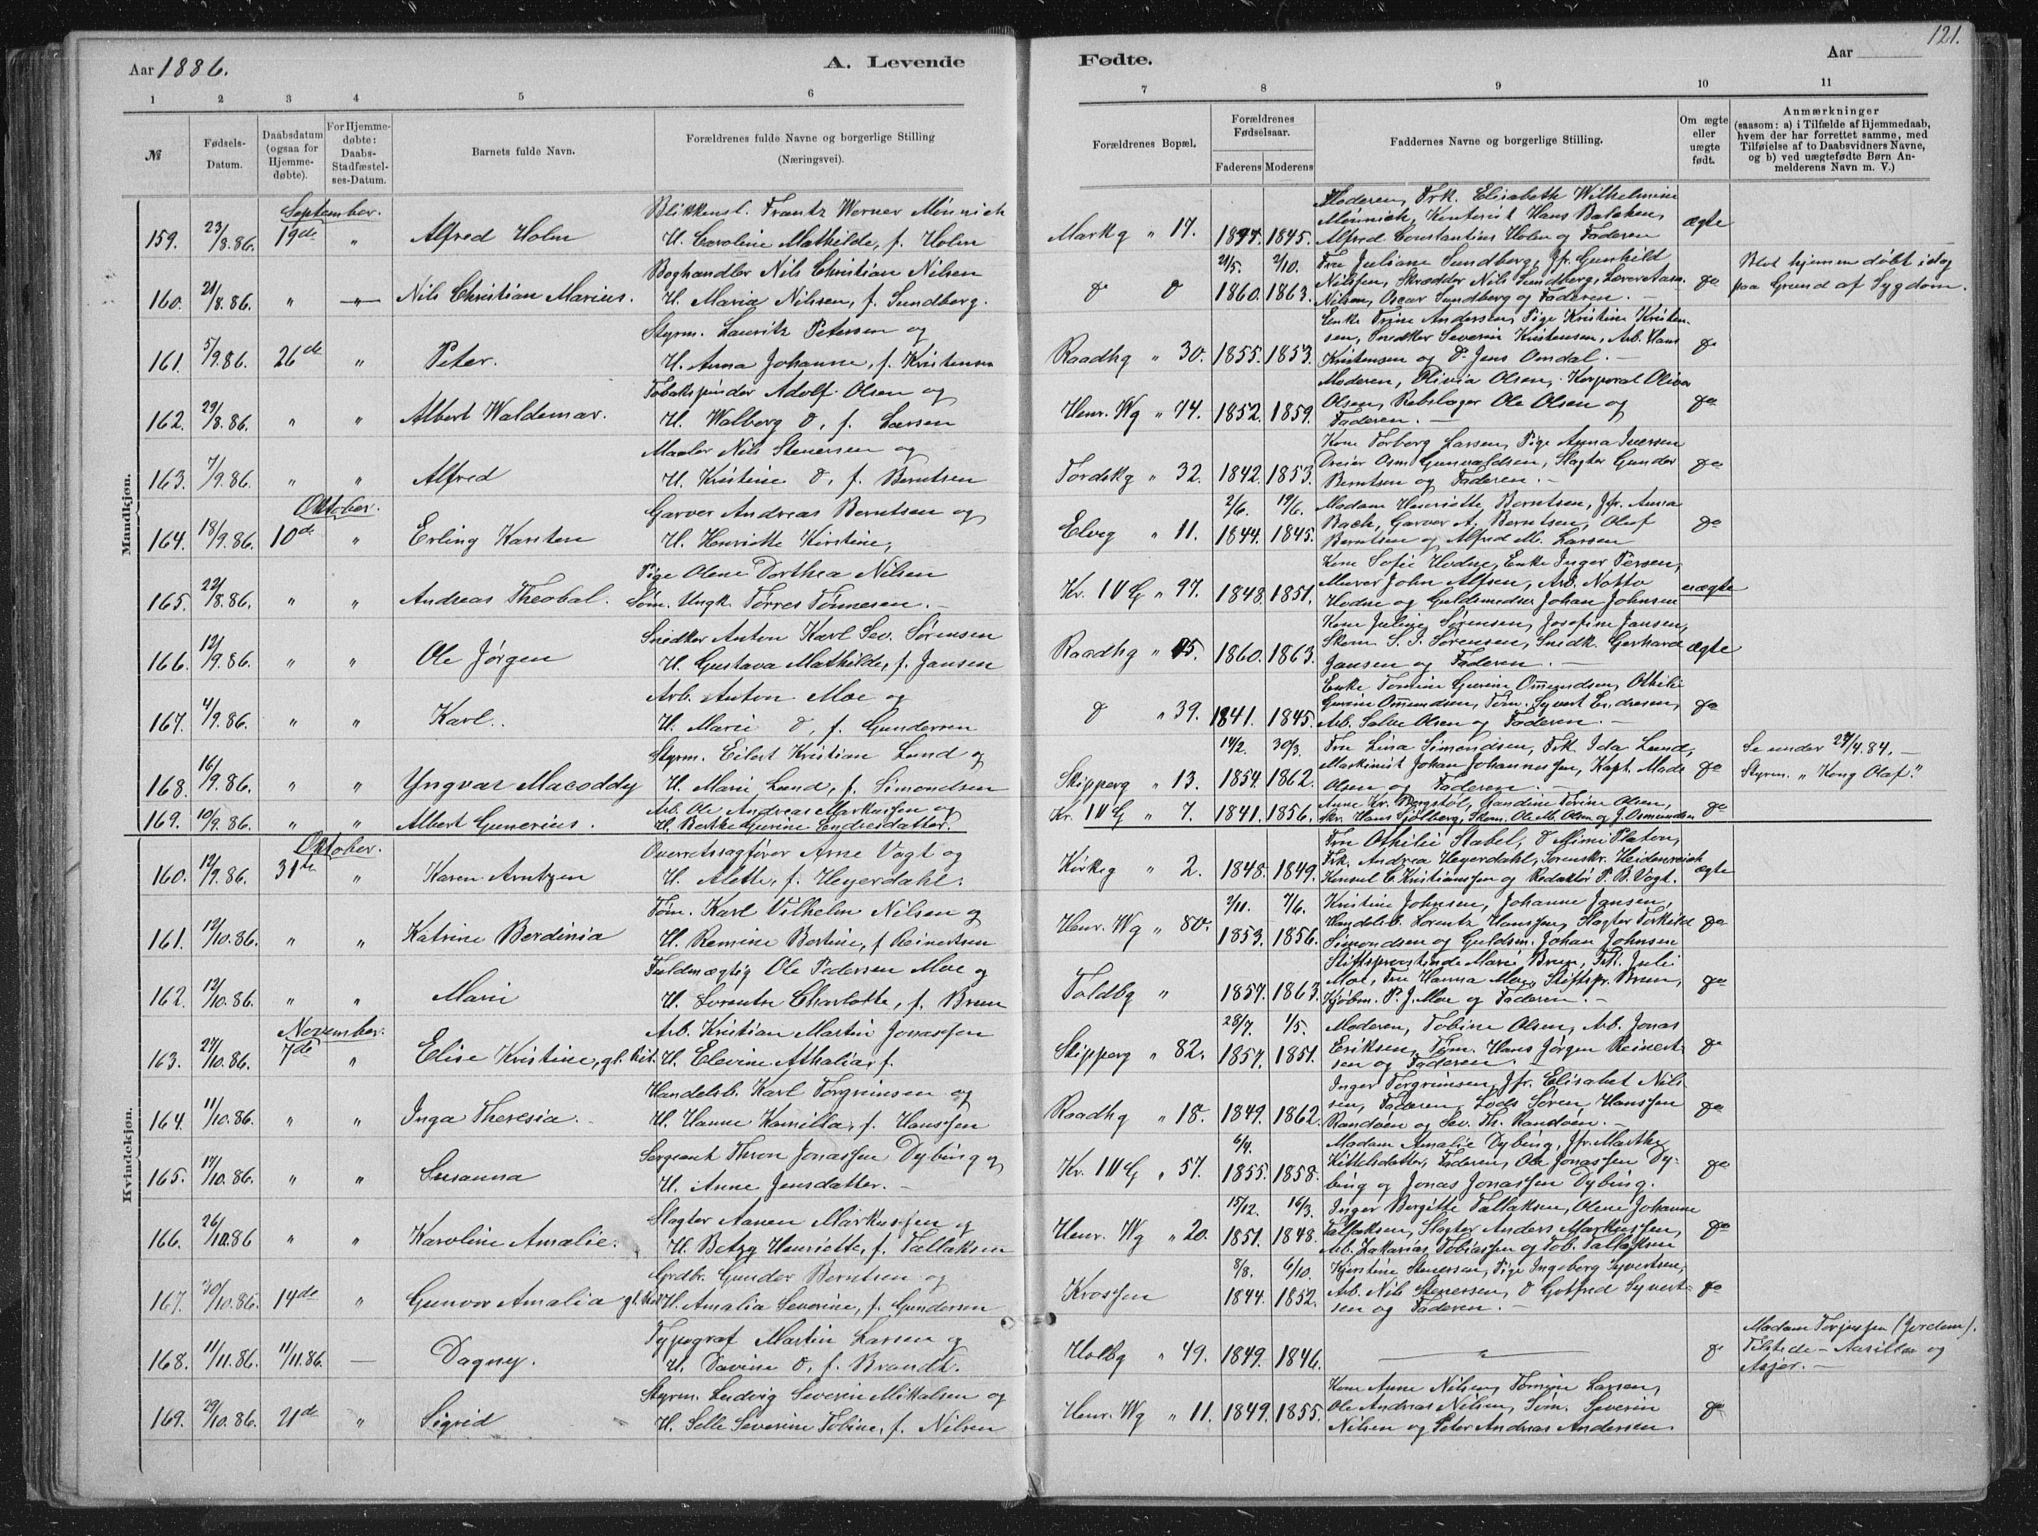 121.
Aar 1886.
A. Levende Fødte.
Aar
1 2 3 4 5 6 7 8 9 10 11
№
Fødsels-Datum.
Daabsdatum (ogsaa for Hjemme-døbte).
For Hjemme-døbte: Daabs-Stadfæstel-ses-Datum.
Barnets fulde Navn.
Forældrenes fulde Navne og borgerlige Stilling (Næringsvei).
Forældrenes Bopæl.
Forældrenes Fødselsaar.
Faderens Moderens
Faddernes Navne og borgerlige Stilling.
Om ægte eller uægte født.
Anmærkninger (saasom: a) i Tilfælde af Hjemmedaab, hvem der har forrettet samme, med Tilføielse af to Daabsvidners Navne, og b) ved uægtefødte Børn An-melderens Navn m. V.)
Mandkjøn.
September.
Blikkensl. Frantz Werner Münnich
Moderen, Frk. Elisabeth Wilhelmine
Münnich, Kontorist Hans Balchen,
159. 23/8.86. 19de " Alfred Holm H. Caroline Mathilde, f. Holm Markg " 17. 1847. 1845. Alfred Constantius Holm og Faderen ægte
Boghandler Nils Christian Nilsen 21/5. 2/10. Fru Juliane Sundberg, Jfr. Gunhild Blot hjemmedøbt idag
160. 21/8.86. " — Nils Christian Marius. H. Marie Nilssen, f. Sundberg. do do 1860. 1863. Nilsen, Skrædder Nils Sundberg, Lærer Aam. do paa Grund af Sygdom.
Nilsen, Oscar Sundberg og Faderen. —
Styrm. Lauritz Petersen og
Enke Trine Andersen, Pige Kristine Kristen-
sen, Snedker Severin Kristensen, Arb. Hans
161. 5/9.86. 26de " Peter. H. Anna Johanne, f. Kristensen Raadhg " 30. 1855. 1853. Kristensen og do Jens Omdal. — do
Tobakspinder Adolf Olsen og
Moderen, Olivia Olsen, Korporal Oliver
162. 29/8.86. " " Albert Waldemar. H. Walborg do, f. Larsen Henr. Wg " 74. 1852. 1859. Olsen, Rebslager Ole Olsen og do
Faderen. —
Maaler Nils Stenersen og
Kone Torborg Larsen, Pige Anna Iversen
Dreier Osm Gunvaldsen, Slagter Gunder
163. 7/9.86. " " Alfred H. Kristine do, f. Berntsen Tordskg " 32. 1842. 1853. Berntsen og Faderen. — do
Oktober.
Garver Andreas Berntsen og 2/6. 19/6. Madam Henriette Berntsen, Jfr. Anna
164. 18/9.86. 10de " Erling Karsten H. Henriette Kirstine, Elveg " 11. 1844. 1845. Bach, Garver A. Berntsen, Oluf do
Berntsen og Alfred M. Larsen
Pige Olene Dorthea Nilsen
Kone Sofie Hodne, Enke Inger Persen,
165. 22/8.86. " " Andreas Theobal. Søm. Ungk. Tørres Tønnesen. — Kr. IV G " 97. 1848. 1851. Murer John Alfsen, Arb. Notto uægte
Hodne og Guldsmedsv Johan Johnsen
Snedker Anton Karl Sev. Sørensen
Kone Juline Sørensen, Josefine Jansen,
166. 12/9.86. " " Ole Jørgen H. Gustava Mathilde, f. Jansen Raadhg " 15. 1860. 1863. Skom S. J. Sørensen, Snedk. Gerhard ægte
Jansen og Faderen. —
Arb. Anton Moe og
Enke Tomine Gurine Omundsen, Othilie
Gurine Omundsen, Tøm. Syvert Endresen,
167. 4/9.86. " " Karl. H. Marie do, f. Gundersen do " 39. 1841. 1845. Arb. Salve Olsen og Faderen. — do
Styrm. Eilert Kristian Lund og 14/2. 30/3. Fru Lina Simondsen, Frk. Ida Lund, Se under 27/4.84. —
168. 16/9.86. " " Yngvar Macoddy H. Marie Lund, f. Simondsen Skipperg " 13. 1854. 1862. Maskinist Johan Johannessen, Kapt. Mads do Styrm. "Kong Olaf."
Olsen og Faderen. —
Arb. Ole Andreas Markussen og
Anne Kr. Bergstøl, Gundine Torine Olsen,
169. 10/9.86. " " Albert Gunerius. H. Berthe Gurine Endresdatter. Kr. IV G " 7. 1841. 1856. Skr. Hans Fjølberg, Skom. Ole M. Olsen og J. Osmundsen do
Kvindekjøn.
Oktober.
Overretssagfører Arne Vogt og
Fru Othilie Stabel, do Mimi Platou,
Frk. Andrea Heyerdahl, Sorenskr. Heidenreich
160. 12/9.86. 31te " Karen Arntzen H. Alette, f. Heyerdahl. Kirkeg " 2. 1848. 1849. Konsul C. Kristianssen og Redaktør P. B. Vogt. ægte
Tøm. Karl Vilhelm Nilsen og 2/11. 7/6. Kristine Johnsen, Johanne Jansen,
161. 12/10.86. " " Katrine Berdinia H. Romine Bertine, f. Reinertsen Henr. Wg " 80. 1853. 1856. Handelsb. Lorentz Hanssen, Slagter Torkild do
Simondsen og Guldsm. Johan Johnsen
Fuldmægtig Ole Pedersen Moe og
Stiftsprovstinde Marie Brun, Frk. Juli
Moe, Fru Hanna Moe, Stiftspr. Brun,
162. 12/10.86. " " Marie H. Lorentze Charlotte, f. Brun Toldbg " 1857. 1863. Kjøbm. P. J. Moe og Faderen. — do
November.
Arb. Kristian Martin Jonassen 28/7. 1/5. Moderen, Tobine Olsen, Arb. Jonas
163. 27/10.86. 7de " Elise Kristine, H. Elevine Athalia, f. Skipperg " 82. 1857. 1851. Eriksen, Tøm. Hans Jørgen Reinert- do
sen og Faderen. —
Handelsb. Karl Torgrimsen og
Inger Torgrimsen, Jfr. Elisabet Nils
164. 11/10.86. " " Inga Theresia. H. Hanne Kamilla, f. Hanssen Raadhg " 18. 1849. 1862. sen, Faderen, Lods Søren Hanssen do
Randøen og Sev. Th. Randøen. —
Sergeant Thron Jonassen Dybing og 6/4. Madam Amalie Dybing, Jfr. Marthe
165. 14/10.86. " " Susanna H. Anne Jensdatter. — Kr. IV G " 57. 1855. 1858. Kittelsdatter, Faderen, Ole Jonassen Dy- do
bing og Jonas Jonassen Dybing.
Slagter Aanen Markussen og 15/12. 16/3. Inger Bergitte Tallaksen, Olene Johanne
166. 26/10.86 " " Karoline Amalie. H. Betzy Henriette, f. Tallaksen Henr. Wg " 20. 1851. 1848. Tallaksen, Slagter Anders Markussen, do
Arb. Zakarias Tobiassen og Tob. Tallaksen
Grdbr. Gunder Berntsen og 8/8. 6/10. Kjerstine Stenersen, Pige Ingeborg Syvertsen,
167. 30/10.86. 14de " Gunvor Amalia H. Amalia Severine, f. Gundersen Krossen 1844. 1852. Arb. Nils Stenersen, do Gotfred Syvert- do
sen og Faderen. —
Typograf Martin Larsen og
Madam Torjussen (Jordem).
168. 11/11.86. 11/11.86. — Dagny. H. Davine do, f. Brandt. Holbg " 49. 1849. 1846. — " — do Tilstede — Aasille og
Asjer. —
Styrm. Ludvig Severin Mikalsen og
Kone Anne Nilsen, Tomine Larsen,
169. 29/10.86. 21de " Sigrid H. Selle Severine Tobine, f. Nilsen Henr. Wg " 11. 1849. 1855. Ole Andreas Nilsen, Tøm. Severin do
Nilsen og Peter Andreas Andersen.